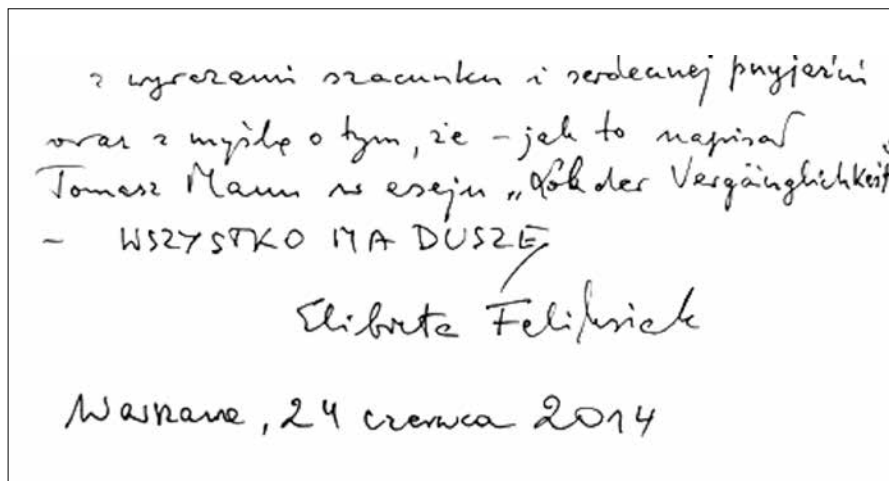 z wyrazami szacunku i serdecznej przyjaźni
oraz z myślą o tym, że – jak to napisał
Tomasz Mann w eseju „Lob der Vergänglichkeit”
– WSZYSTKO MA DUSZĘ
Elżbieta Feliksiak
Warszawa, 24 czerwca 2014